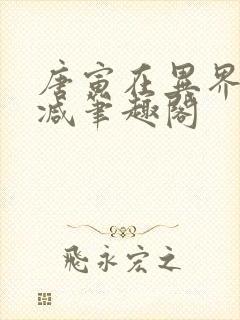 唐寅在異界
減筆趣閣
飛永宏之